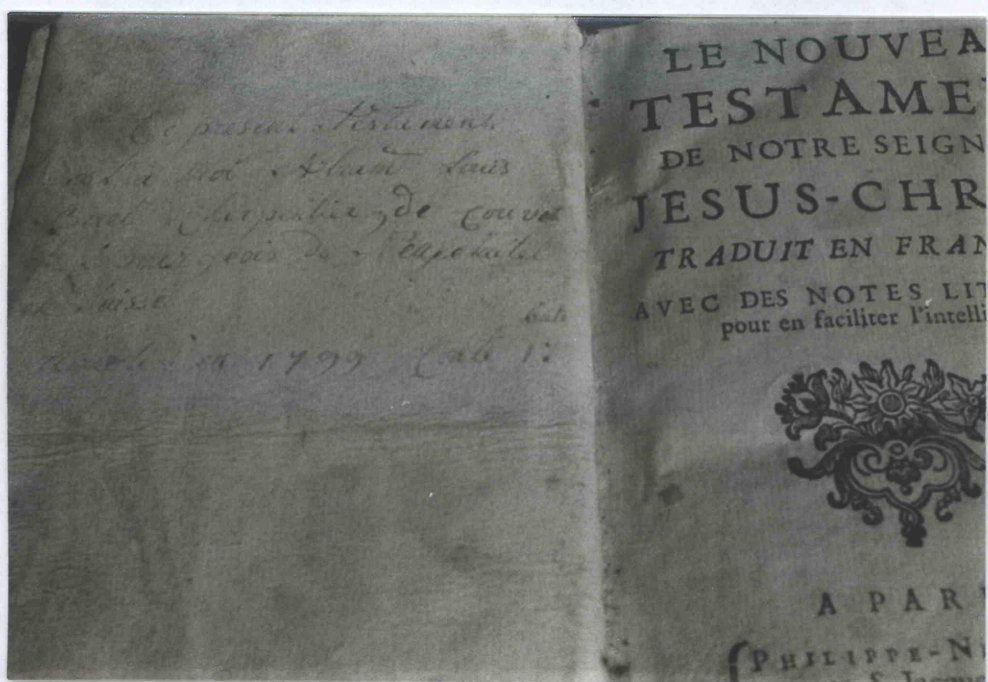 Ce present testement
a moi Abram Louis
Borel charpentier, de Couvet
bourgeois de Neuchatel
en Suisse
batz
en 1799 Coute 1:
LE NOUVEA
TESTAME
DE NOTRE SEIGN
JESUS-CHR
TRADUIT EN FRAN
AVEC DES NOTES LIT
pour en faciliter l'intelli
A PAR
PHILIPPE-N
S. Jacque